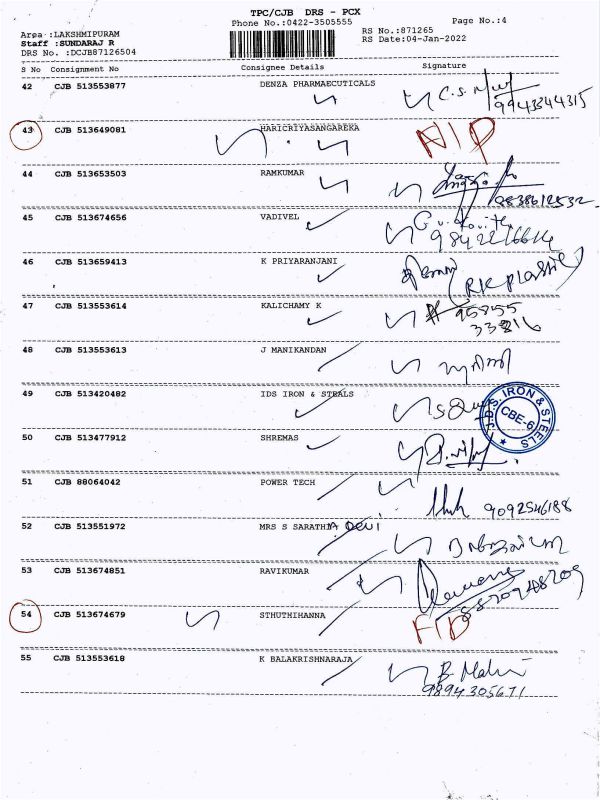 TPC/CJB DRS - PCX
Phone No.:0422-3505555
Page No.:4
Area :LAKSHMIPURAM
Staff :SUNDARAJ R
DRS No. :DCJB87126504
RS No.:871265
RS Date:04-Jan-2022
S No Consignment No Consignee Details Signature
42 CJB 513553877 DENZA PHARMAECUTICALS
9943344315
43 CJB 513649081 HARICRIYASANGAREKA
44 CJB 513653503 RAMKUMAR
9838612532
45 CJB 513674656 VADIVEL
46 CJB 513659413 K PRIYARANJANI
(RK plastic)
47 CJB 513553614 KALICHAMY K
95855
33816
48 CJB 513553613 J MANIKANDAN
49 CJB 513420482 IDS IRON & STEALS
J.D.S. IRON & STEELS
CBE-6
50 CJB 513477912 SHREMAS
51 CJB 88064042 POWER TECH
9092546188
52 CJB 513551972 MRS S SARATHA DEVI
53 CJB 513674851 RAVIKUMAR
8870948209
54 CJB 513674679 STHUTHIHANNA
55 CJB 513553618 K BALAKRISHNARAJA
9894305671